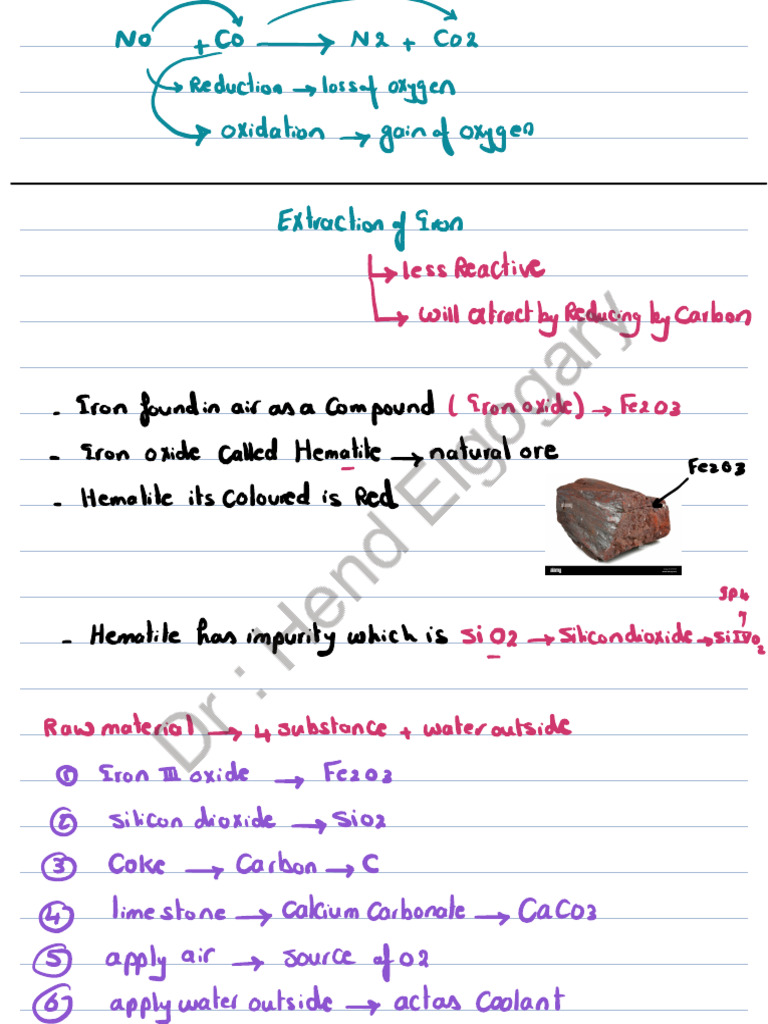 No + Co → N2 + Co2
→ Reduction → loss of oxygen
→ oxidation → gain of oxygen
Extraction of Iron
→ less Reactive
→ will atract by Reducing by Carbon
- Iron found in air as a Compound ( Iron oxide) → Fe2O3
- Iron oxide Called Hematite → natural ore
Fe2O3
- Hematite its Coloured is Red
alamy
GP4
- Hematite has impurity which is SiO2 → Silicon dioxide → Si IV O2
Raw material → 4 substance + water outside
① Iron III oxide → Fe2O3
② silicon dioxide → SiO2
③ Coke → Carbon → C
④ lime stone → Calcium Carbonate → CaCO3
⑤ apply air → source of O2
⑥ apply water outside → act as Coolant
Dr : Hend Elgogary